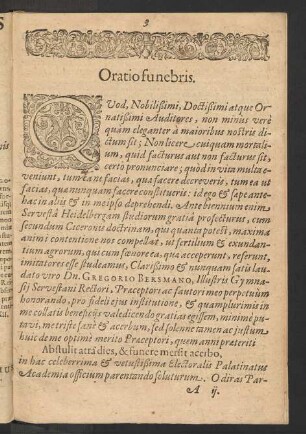 3
Oratio funebris.
QVod, Nobilißimi, Doctißimi atque Or-
natißimi Auditores, non minus verè
quàm eleganter à maioribus nostris di-
ctum sit; Non licere cuiquam mortali-
um, quid facturus aut non facturus sit,
certo pronunciare; quòd in vita multa e-
veniunt, tum ut ne facias, quæ facere decreveris, tum ea ut
facias, quæ nunquam facere constitueris: id ego & sæpe ante-
hac in aliis & in meipso deprehendi. Ante biennium enim,
Servestâ Heidelbergam studiorum gratiâ profecturus, cum
secundum Ciceronis doctrinam, qui quanta potest, maxima
animi contentione nos compellat, ut fertilium & exundan-
tium agrorum, qui cum fœnore ea, quæ acceperunt, referunt,
imitatores esse studeamus, Clarißimo & nunquam satis lau-
dato viro Dn. GREGORIO BERSMANO, Illustris Gymna-
sij Servestani Rectori, Præceptori ac fautori meo perpetuùm
honorando, pro fideli ejus institutione, & quamplurimis in
me collatis beneficijs valedicendo gratias egissem, minimè pu-
tavi, me triste sanè & acerbum, sed solenne tamen ac justum
huic de me optimè merito Præceptori, quem anni præteriti
Abstulit atra dies, & funere mersit acerbo,
in hac celeberrima & vetustißima Electoralis Palatinatus
Academia officium parentando soluturum. O diras Par-
A ij.